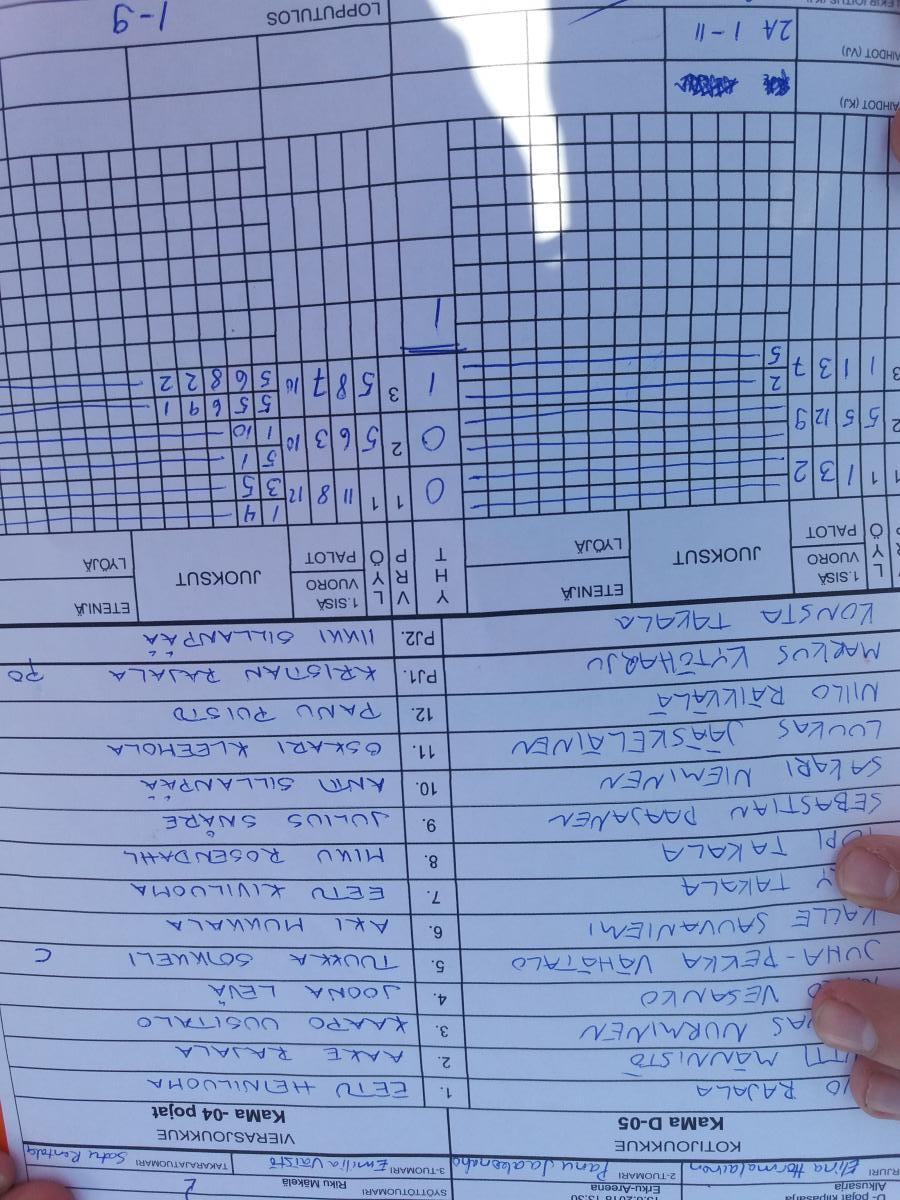 D- pojat kilpasarja
Alkusarja
Erku-Areena
Riku Mäkelä
SYÖTTÖTUOMARI
2-TUOMARI Panu Jaakonaho
3-TUOMARI Emilia Väistö
TAKARAJATUOMARI Satu Rentola
KOTIJOUKKUE
KaMa D-05
VIERASJOUKKUE
KaMa -04 pojat
RAJALA
1. EETU HEINILUOMA
MÄNNISTÖ
2. AAKE RAJALA
NURMINEN
3. KAAPO UUSITALO
VESANKO
4. JOONA LEVÄ
JUHA-PEKKA VÄHÄTALO
5. TUUKKA SOIKKELI C
KALLE SAUVANIEMI
6. AKI MUKKALA
TAKALA
7. EETU KIVILUOMA
TOPI TAKALA
8. MIKU ROSENDAHL
SEBASTIAN PAAJANEN
9. JULIUS SNÅRE
SAKARI NIEMINEN
10. ANTTI SILLANPÄÄ
LUUKAS JÄÄSKELÄINEN
11. OSKARI KLEEMOLA
NIILO RÄIKKÄLÄ
12. PANU PUISTO
MARKUS KYTÖHARJU
PJ1. KRISTIAN RAJALA PO
KONSTA TAKALA
PJ2. IIKKI SILLANPÄÄ
L Y Ö 1.SISÄ VUORO PALOT JUOKSUT ETENIJÄ LYÖJÄ
Y H T
V P R L Y Ö 1.SISÄ VUORO PALOT JUOKSUT ETENIJÄ LYÖJÄ
1 1 1 3 2 0 1 1 11 8 12 1 4
3 5
2 5 5 12 9 0 2 5 6 3 10 5 1
1 10
3 1 1 3 7 2 1 3 5 8 7 10 5 5 6 9 1
5 5 6 8 2 2
1
VAIHDOT (KJ)
VAIHDOT (VJ) 2A 1-11
LOPPUTULOS 1-9